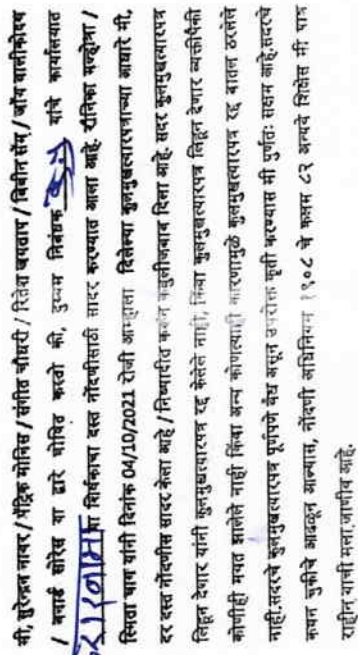 मी, सुरेन्द्रन नायर / पॅट्रिक मोनिस / संगीत चौधरी / रितेश जयताप / विपीन सेम् / जॉय वाल्मीकीय
/ बनार्ड सोरेस या द्वारे घोषित करतो की, दुय्यम निबंधक यांचे कार्यालयात
करारनामा या शिर्षकाचा दस्त नोंदणीसाठी सादर करण्यात आला आहे. रोनिका मल्होत्रा /
स्मिता घाग यांनी दिनांक 04/10/2021 रोजी आम्हाला दिलेल्या कुलमुखत्यारपत्राच्या आधारे मी,
दर दस्त नोंदणीस सादर केला आहे / निष्पादीत करुन कबुलीजबाब दिला आहे. सदर कुलमुखत्यारपत्र
लिहून देणार यांनी कुलमुखत्यारपत्र रद्द केलेले नाही, किंवा कुलमुखत्यारपत्र लिहून देणार व्यक्तीपैकी
कोणीही मयत झालेले नाही किंवा अन्य कोणत्याही कारणामुळे कुलमुखत्यारपत्र रद्द बातल ठरलेले
नाही.सदरचे कुलमुखत्यारपत्र पूर्णपणे वैध असून उपरोक्त कृती करण्यास मी पुर्णतः सक्षम आहे.सदरचे
कथन चुकीचे आढळून आल्यास, नोंदणी अधिनियम १९०८ चे कलम ८२ अन्वये शिक्षेस मी पात्र
राहीन याची मला जाणीव आहे.